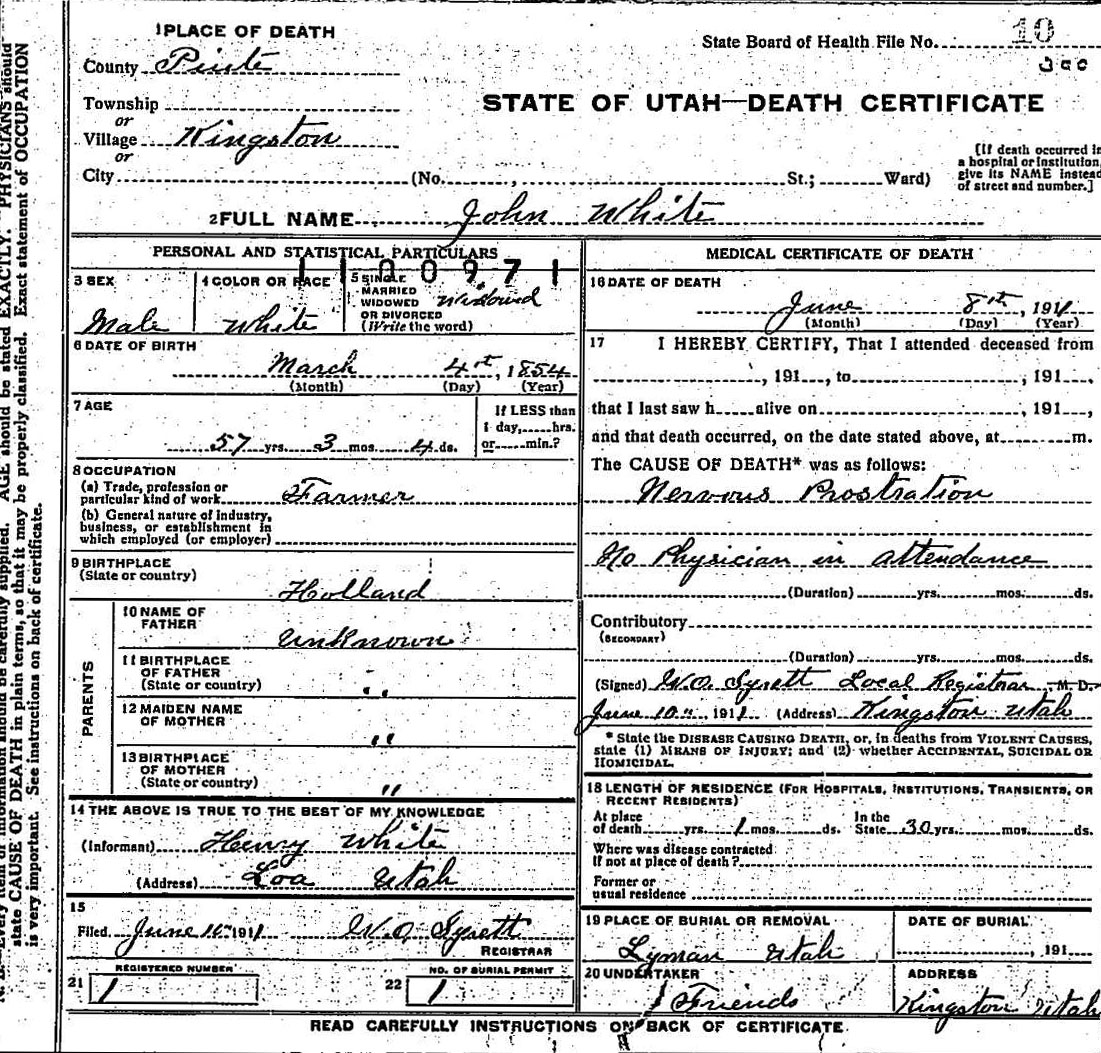 1 PLACE OF DEATH
State Board of Health File No. 10
300
County Piute
STATE OF UTAH—DEATH CERTIFICATE
Township
or
Village Kingston
or
City (No. , St.; Ward)
[If death occurred in
a hospital or institution,
give its NAME instead
of street and number.]
2 FULL NAME John White
PERSONAL AND STATISTICAL PARTICULARS
1100971
3 SEX
Male
4 COLOR OR RACE
White
5 SINGLE
MARRIED
WIDOWED
OR DIVORCED
(Write the word)
Widowed
6 DATE OF BIRTH
March 4th, 1854
(Month) (Day) (Year)
7 AGE
57 yrs. 3 mos. 4 ds.
If LESS than
1 day, hrs.
or min.?
8 OCCUPATION
(a) Trade, profession or
particular kind of work Farmer
(b) General nature of industry,
business, or establishment in
which employed (or employer)
9 BIRTHPLACE
(State or country)
Holland
PARENTS
10 NAME OF
FATHER
Unknown
11 BIRTHPLACE
OF FATHER
(State or country) "
12 MAIDEN NAME
OF MOTHER
"
13 BIRTHPLACE
OF MOTHER
(State or country) "
14 THE ABOVE IS TRUE TO THE BEST OF MY KNOWLEDGE
(Informant) Henry White
(Address) Loa Utah
15
Filed June 10" 1911 W.O. Syrett
REGISTRAR
21 REGISTERED NUMBER
1
22 NO. OF BURIAL PERMIT
1
MEDICAL CERTIFICATE OF DEATH
16 DATE OF DEATH
June 8th, 1911
(Month) (Day) (Year)
17 I HEREBY CERTIFY, That I attended deceased from
, 191 , to , 191 ,
that I last saw h alive on , 191 ,
and that death occurred, on the date stated above, at m.
The CAUSE OF DEATH* was as follows:
Nervous Prostration
No Physician in attendance
(Duration) yrs. mos. ds.
Contributory
(SECONDARY)
(Duration) yrs. mos. ds.
(Signed) W.O. Syrett Local Registrar, M. D.
June 10" 1911 (Address) Kingston Utah
* State the DISEASE CAUSING DEATH, or, in deaths from VIOLENT CAUSES,
state (1) MEANS OF INJURY; and (2) whether ACCIDENTAL, SUICIDAL OR
HOMICIDAL.
18 LENGTH OF RESIDENCE (FOR HOSPITALS, INSTITUTIONS, TRANSIENTS, OR
RECENT RESIDENTS)
At place
of death yrs. 1 mos. ds.
In the
State 30 yrs. mos. ds.
Where was disease contracted
If not at place of death?
Former or
usual residence
19 PLACE OF BURIAL OR REMOVAL
Lyman Utah
DATE OF BURIAL
, 191
20 UNDERTAKER
Friends
ADDRESS
Kingston Utah
READ CAREFULLY INSTRUCTIONS ON BACK OF CERTIFICATE.
Every item of information should be carefully supplied. AGE should be stated EXACTLY. PHYSICIANS should
state CAUSE OF DEATH in plain terms, so that it may be properly classified. Exact statement of OCCUPATION
is very important. See instructions on back of certificate.